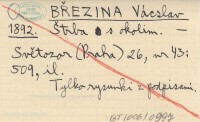 BŘEZINA Václav
1892. Štrba s okolím. —
Světozor (Praha) 26, nr 43:
509, il.
Tylko rysunki z podpisami.